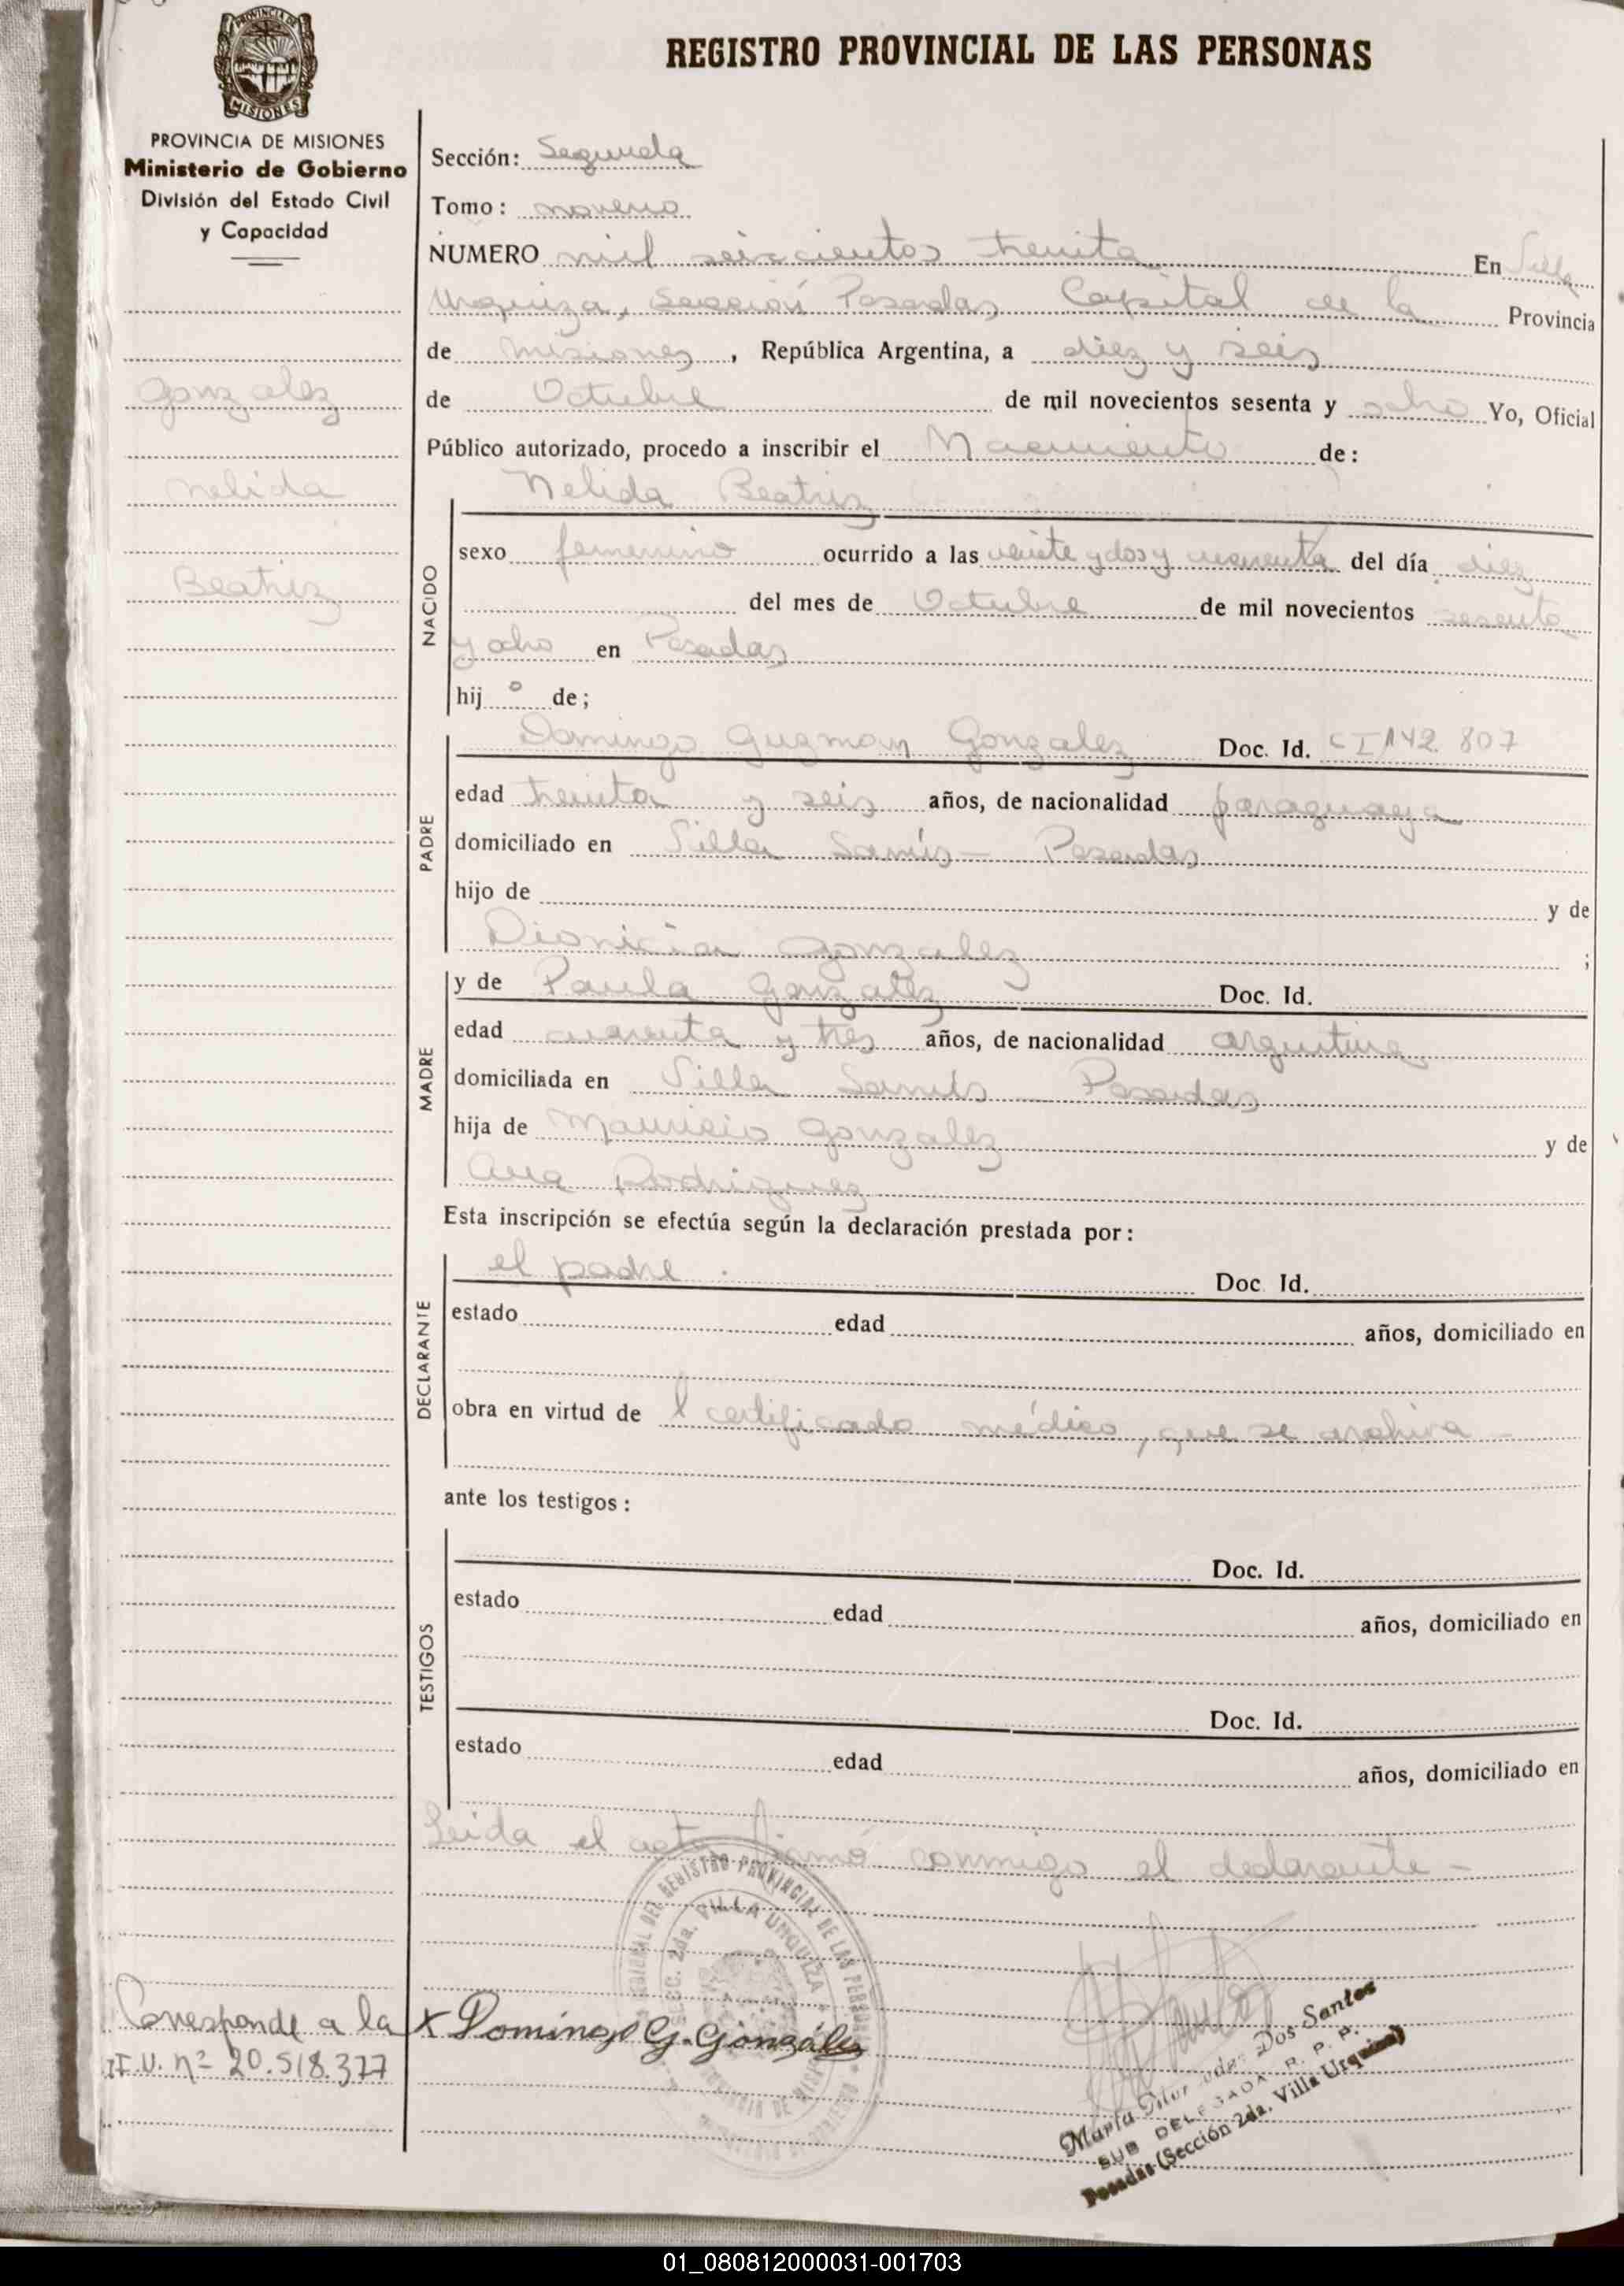 PROVINCIA DE
MISIONES
REGISTRO PROVINCIAL DE LAS PERSONAS
PROVINCIA DE MISIONES
Ministerio de Gobierno
División del Estado Civil
y Capacidad
Gonzalez
Nelida
Beatriz
Sección: Segunda
Tomo: noveno
NUMERO mil seiscientos treinta En Villa
Urquiza, Sección Posadas Capital de la Provincia
de Misiones, República Argentina, a diez y seis
de Octubre de mil novecientos sesenta y ocho Yo, Oficial
Público autorizado, procedo a inscribir el Nacimiento de:
NACIDO
Nelida Beatriz
sexo femenino ocurrido a las veinte y dos y cuarenta del día diez
del mes de Octubre de mil novecientos sesenta
y ocho en Posadas
hij a de;
PADRE
Domingo Guzman Gonzalez Doc. Id. CI 142.807
edad treinta y seis años, de nacionalidad paraguaya
domiciliado en Villa Sarmís - Posadas
hijo de y de
Dionicia Gonzalez ;
MADRE
y de Paula Gonzalez Doc. Id.
edad cuarenta y tres años, de nacionalidad argentina
domiciliada en Villa Posadas
hija de Mauricio Gonzalez y de
Ana Rodriguez
Esta inscripción se efectúa según la declaración prestada por:
DECLARANTE
el padre. Doc. Id.
estado edad años, domiciliado en
obra en virtud de l certificado médico, que se archiva -
ante los testigos:
TESTIGOS
Doc. Id.
estado edad años, domiciliado en
Doc. Id.
estado edad años, domiciliado en
Leida el acta firmó conmigo el declarante -
DEL REGISTRO PROVINCIAL DE LAS PERSONAS
SECC. 2da. VILLA URQUIZA
Corresponde a la
n° 20.518.377
x Domingo G. González
María Pilar vda. Dos Santos
SUB DELEGADA R. P. P.
Posadas (Sección 2da. Villa Urquiza)
01_080812000031-001703